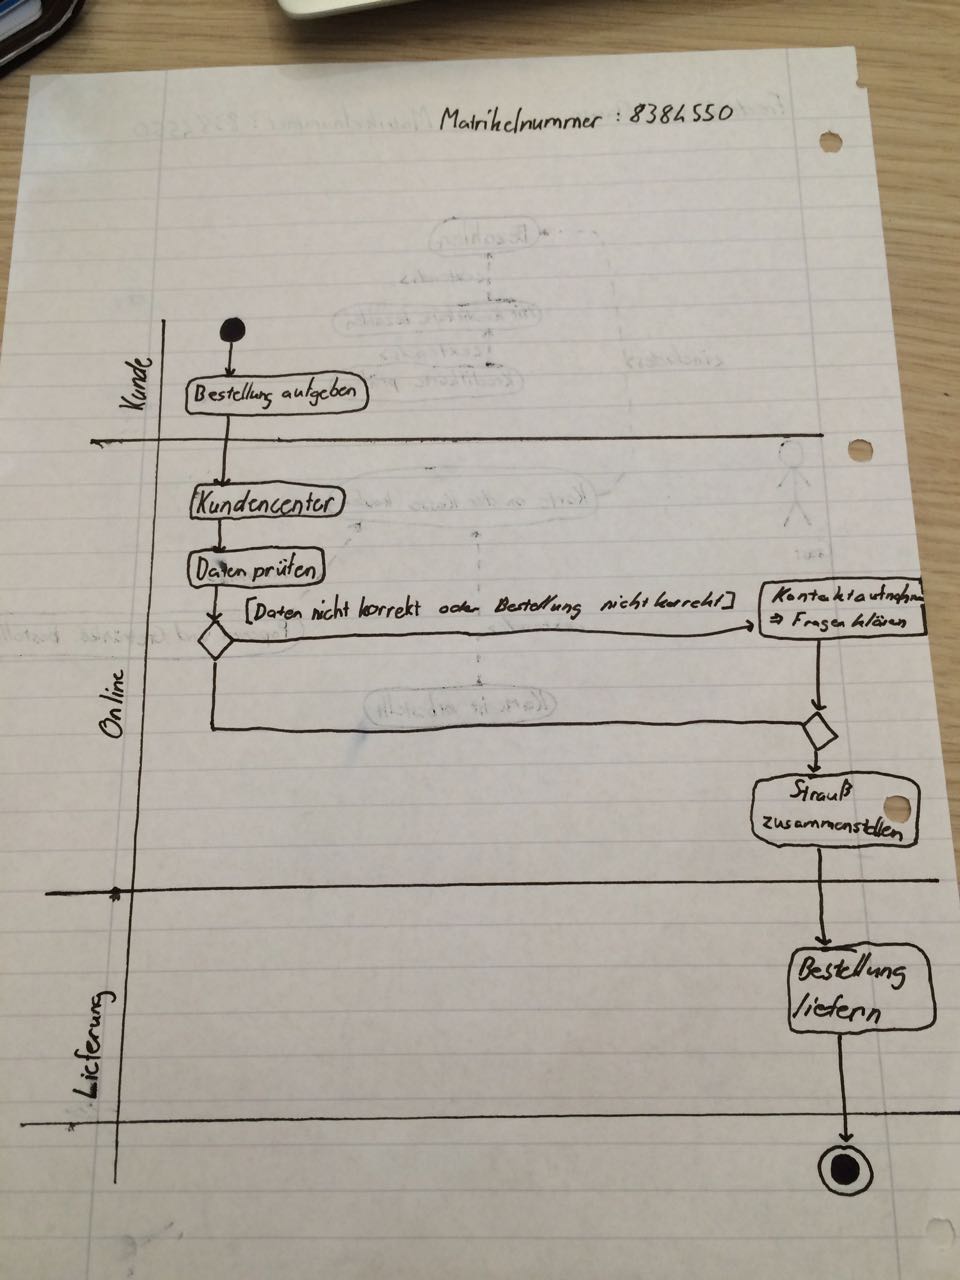 Matrikelnummer : 8384550
Kunde
Bestellung aufgeben
Kundencenter
Daten prüfen
[Daten nicht korrekt oder Bestellung nicht korrekt]
Kontaktaufnahm
⇒ Fragen klären
Online
Strauß
zusammenstellen
Lieferung
Bestellung
liefern